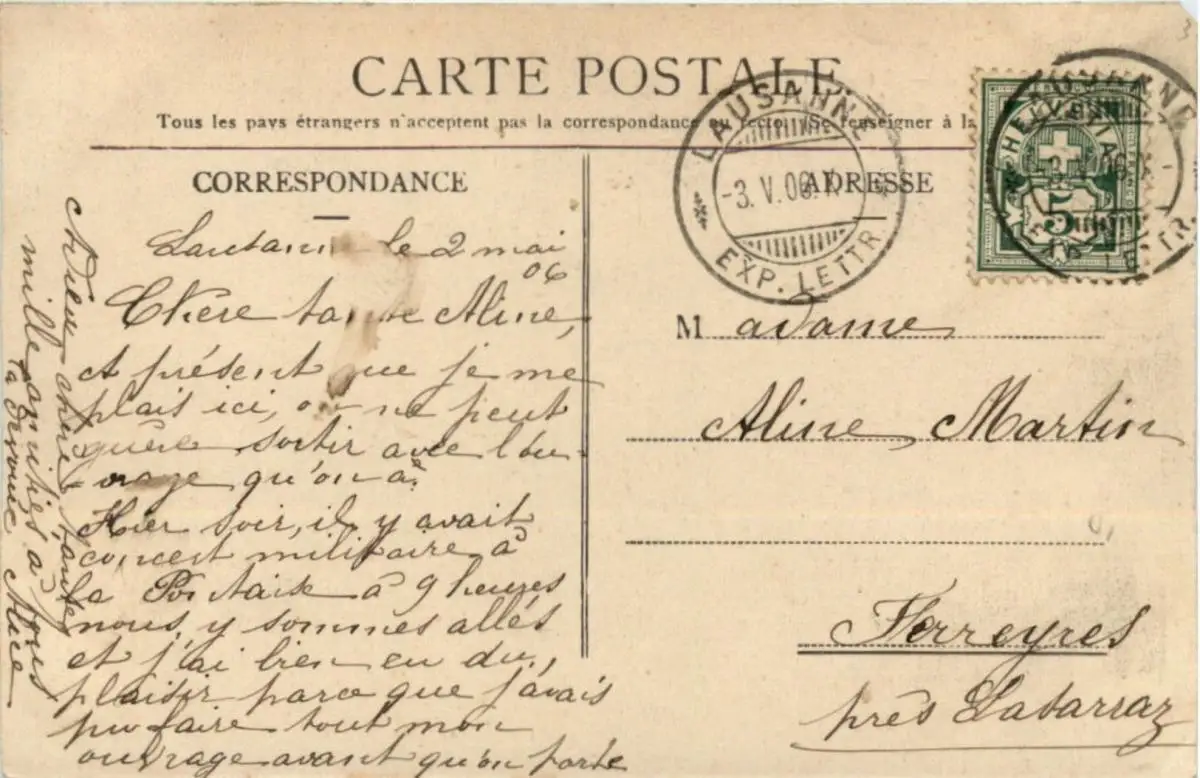 CARTE POSTALE
Tous les pays étrangers n'acceptent pas la correspondance au recto. (Se renseigner à la
CORRESPONDANCE
ADRESSE
LAUSANNE
-3. V. 06. X
EXP. LETTR.
HELVETIA
5
Lausanne le 2 mai
06
Chère tante Aline,
A présent que je me
plais ici, on ne peut
guère sortir avec l'ou-
vrage qu'on a.
Hier soir, il y avait
concert militaire à
la Pontaise à 9 heures
nous y sommes allés
et j'ai bien eu du
plaisir parce que j'avais
pu faire tout mon
ouvrage avant qu'on parte
Adieu chère tante
mille amitiés à tous
à revoir, Alice
Madame
Aline Martin
Ferreyres
près Lasarraz